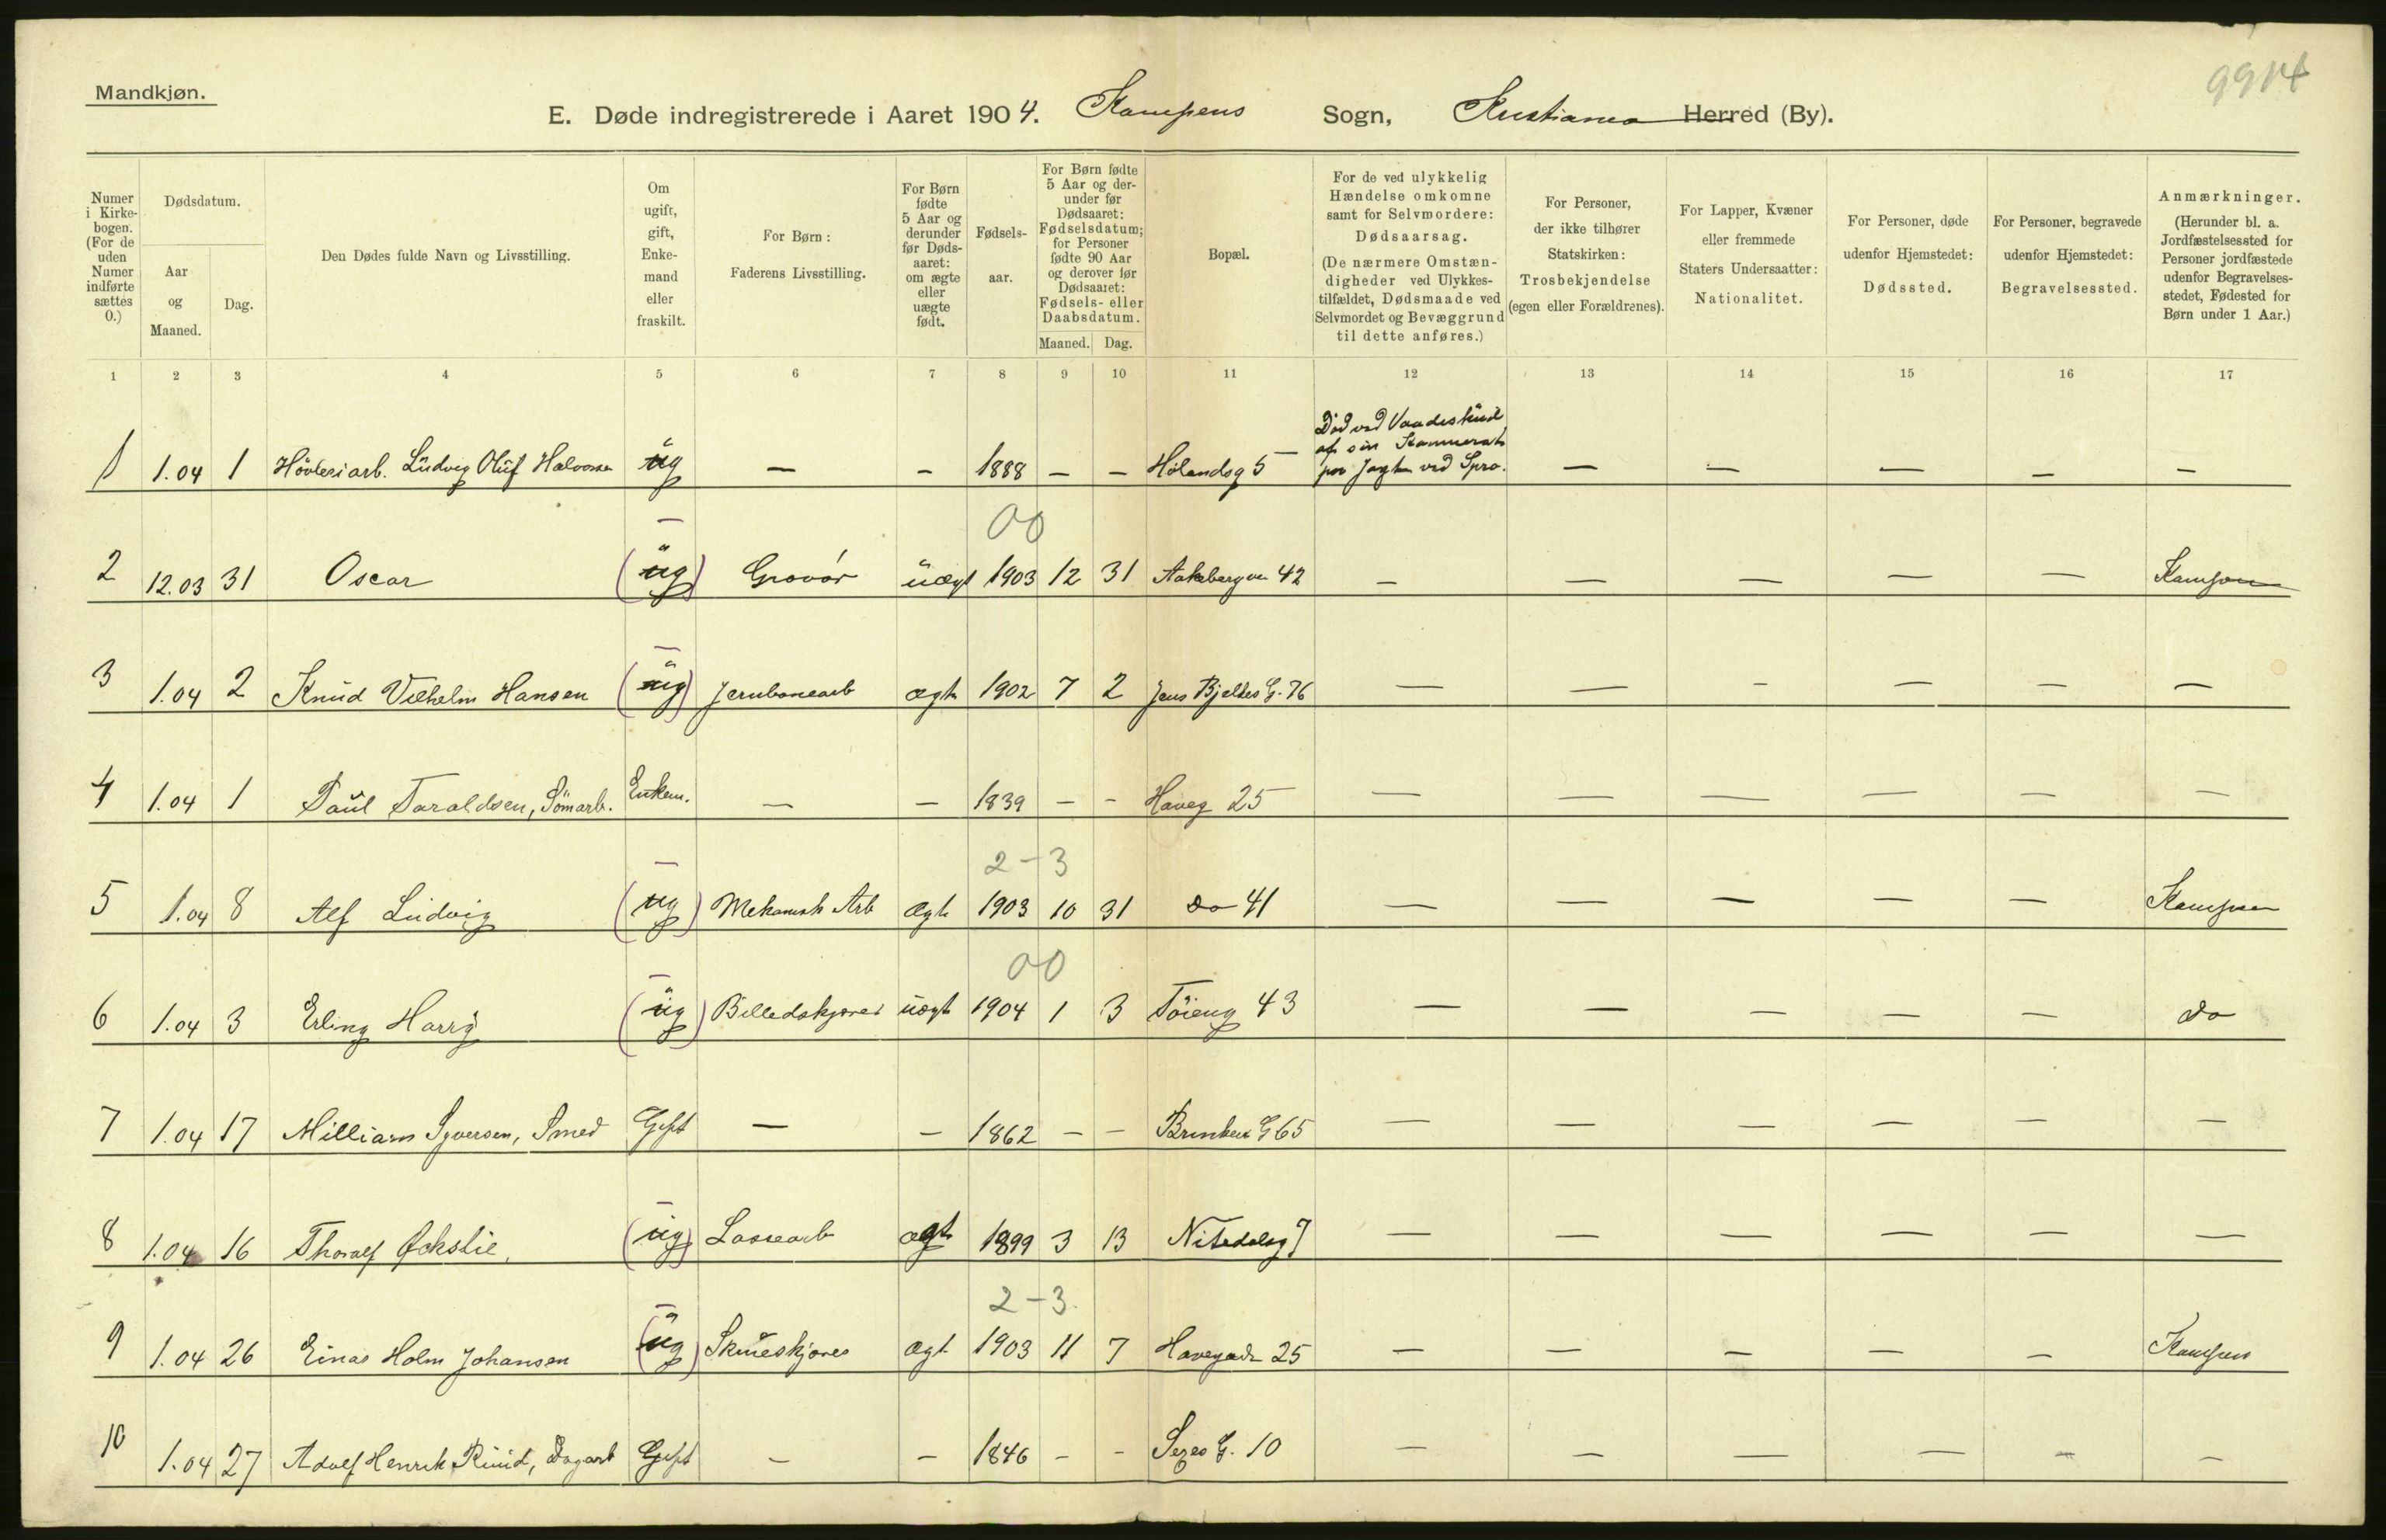 9914
Mandkjøn.
E. Døde indregistrerede i Aaret 1904. Kampens Sogn, Kristiania Herred (By).
Numer i Kirkebogen. (For de uden Numer indførte sættes 0.)
Dødsdatum.
Aar og Maaned.
Dag.
Den Dødes fulde Navn og Livsstilling.
Om ugift, gift, Enkemand eller fraskilt.
For Børn: Faderens Livsstilling.
For Børn fødte 5 Aar og derunder før Dødsaaret: om ægte eller uægte født.
Fødselsaar.
For Børn fødte 5 Aar og derunder før Dødsaaret: Fødselsdatum; for Personer fødte 90 Aar og derover før Dødsaaret: Fødsels- eller Daabsdatum.
Maaned. Dag.
Bopæl.
For de ved ulykkelig Hændelse omkomne samt for Selvmordere: Dødsaarsag. (De nærmere Omstændigheder ved Ulykkestilfældet, Dødsmaade ved Selvmordet og Bevæggrund til dette anføres.)
For Personer, der ikke tilhører Statskirken: Trosbekjendelse (egen eller Forældrenes).
For Lapper, Kvæner eller fremmede Staters Undersaatter: Nationalitet.
For Personer, døde udenfor Hjemstedet: Dødssted.
For Personer, begravede udenfor Hjemstedet: Begravelsessted.
Anmærkninger. (Herunder bl. a. Jordfæstelsessted for Personer jordfæstede udenfor Begravelsesstedet, Fødested for Børn under 1 Aar.)
1 2 3 4 5 6 7 8 9 10 11 12 13 14 15 16 17
1 1.04 1 Høvleriarb. Ludvig Oluf Halvorsen ug — — 1888 — — Hølandsg 5 Død ved Vaadeskud af sin Kammerat paa Jagten ved — — — — —
00
2 12.03 31 Oscar (ug) Gravør uægt 1903 12 31 Aakebergvn 42 — — — — — Kampen
3 1.04 2 Knud Vilhelm Hansen (ug) Jernbanearb ægte 1902 7 2 Jens Bjelkes G. 76 — — — — — —
4 1.04 1 Paul Taraldsen, Sömarb. Enkem. — — 1839 — — Haveg 25 — — — — — —
2-3
5 1.04 8 Alf Ludvig (ug) Mekanisk Arb ægte 1903 10 31 do 41 — — — — — Kampen
00
6 1.04 3 Erling Harry (ug) Billedskjærer uægt 1904 1 3 Töieng 43 — — — — — do
7 1.04 17 Milliam Syversen, Smed Gift — — 1862 — — Brinken G 65 — — — — — —
8 1.04 16 Thoralf Økslie. (ug) Lossearb ægte 1899 3 13 Nitedalsg 7 — — — — — —
2-3.
9 1.04 26 Einar Holm Johansen (ug) ægt 1903 11 7 Havegade 25 — — — — — Kampen
10 1.04 27 Adolf Henrik Ruud, Dagarb Gift — — 1846 — — G. 10 — — — — — —